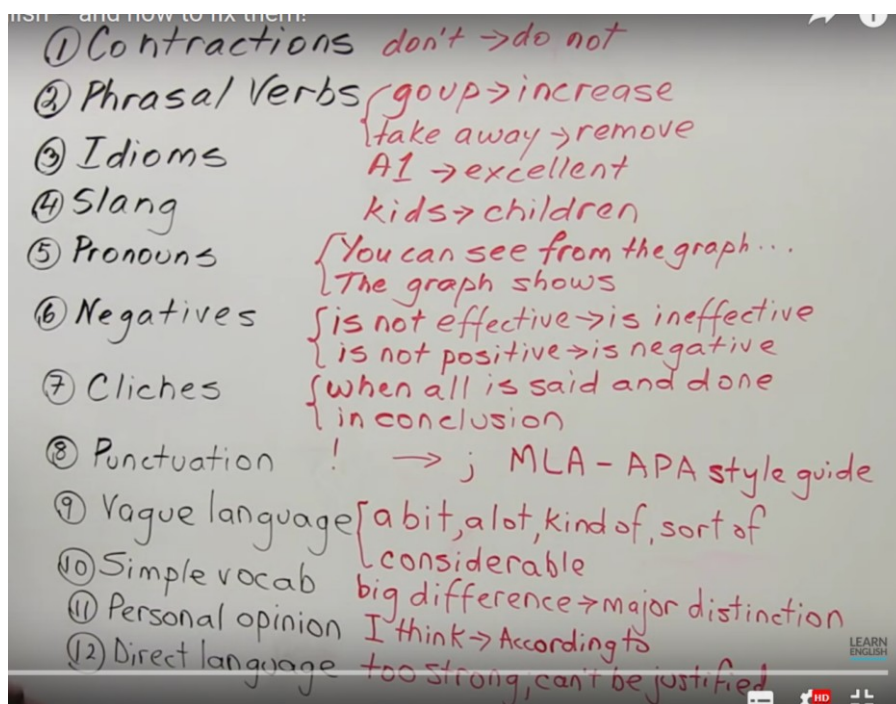 and how to fix them!
① Contractions don't → do not
② Phrasal Verbs { go up → increase
take away → remove
③ Idioms A1 → excellent
④ Slang kids → children
⑤ Pronouns { You can see from the graph...
The graph shows
⑥ Negatives { is not effective → is ineffective
is not positive → is negative
⑦ Cliches { when all is said and done
in conclusion
⑧ Punctuation ! → ; MLA - APA style guide
⑨ Vague language [ a bit, a lot, kind of, sort of
considerable
⑩ Simple vocab big difference → major distinction
⑪ Personal opinion I think → According to
⑫ Direct language too strong, can't be justified
LEARN
ENGLISH
HD